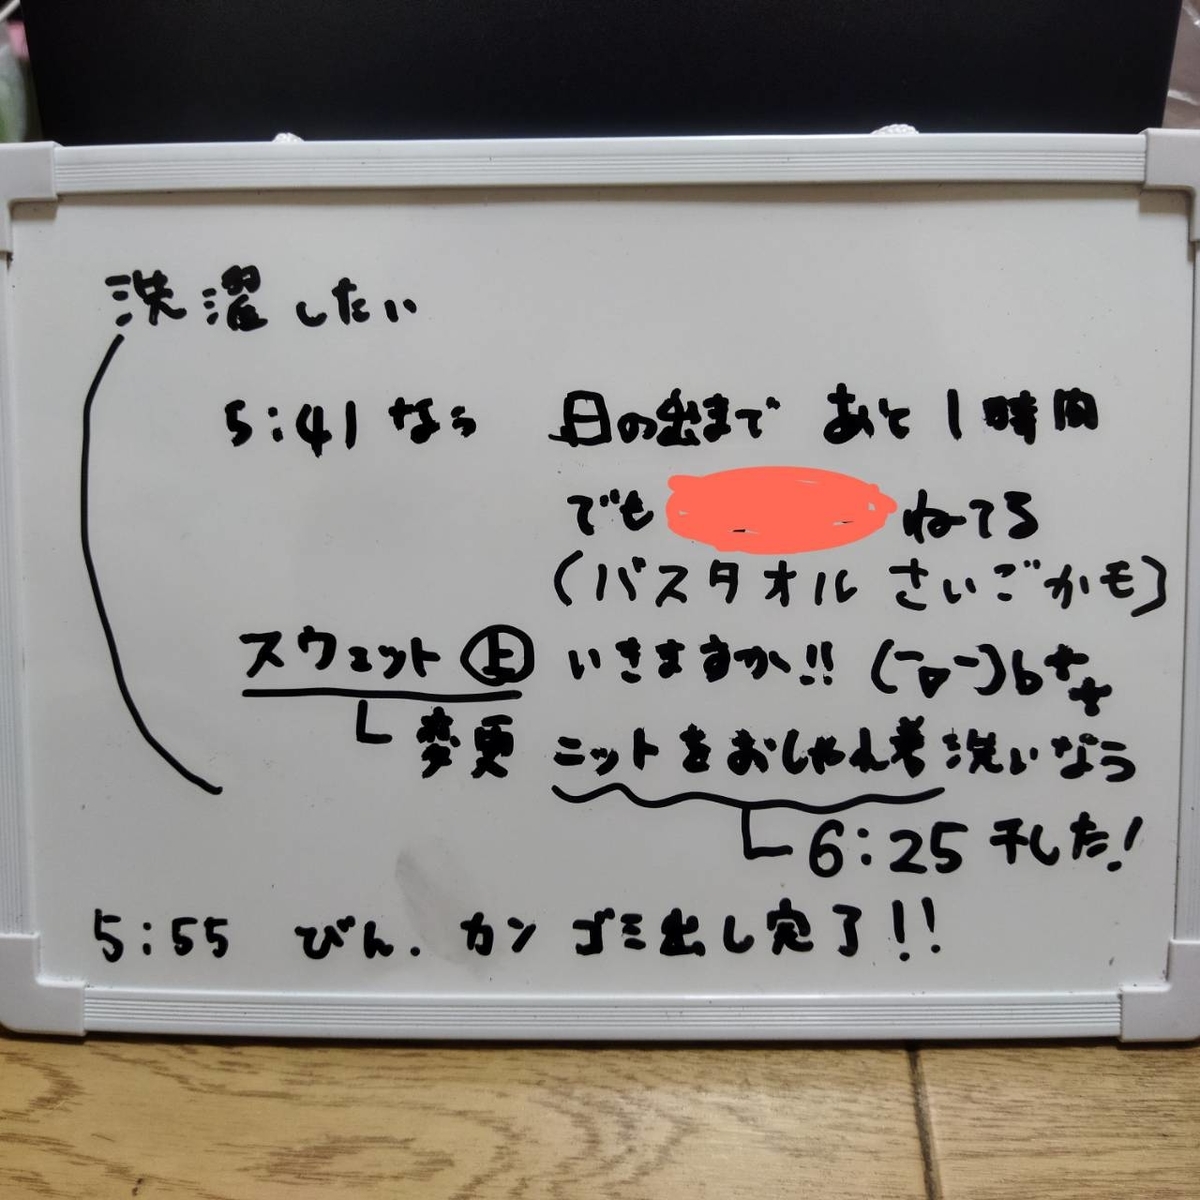 洗濯したい
5:41なう 日の出まで あと1時間
でも ねてる
(バスタオル さいごかも)
スウェット上 いきますか!! (ˉ▽ˉ)b++
変更 ニットをおしゃれ着洗いなう
6:25 干した!
5:55 びん.カン ゴミ出し完了!!